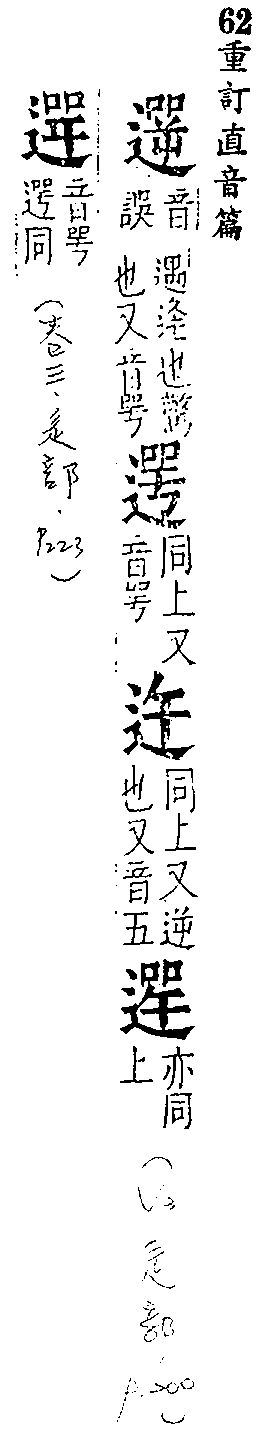 62重訂直音篇
音誤遇逢也驚也又音咢遻同上又音咢迕同上又逆也又音五亦同上
辵部
音咢遻同(卷三、辵部.P223)